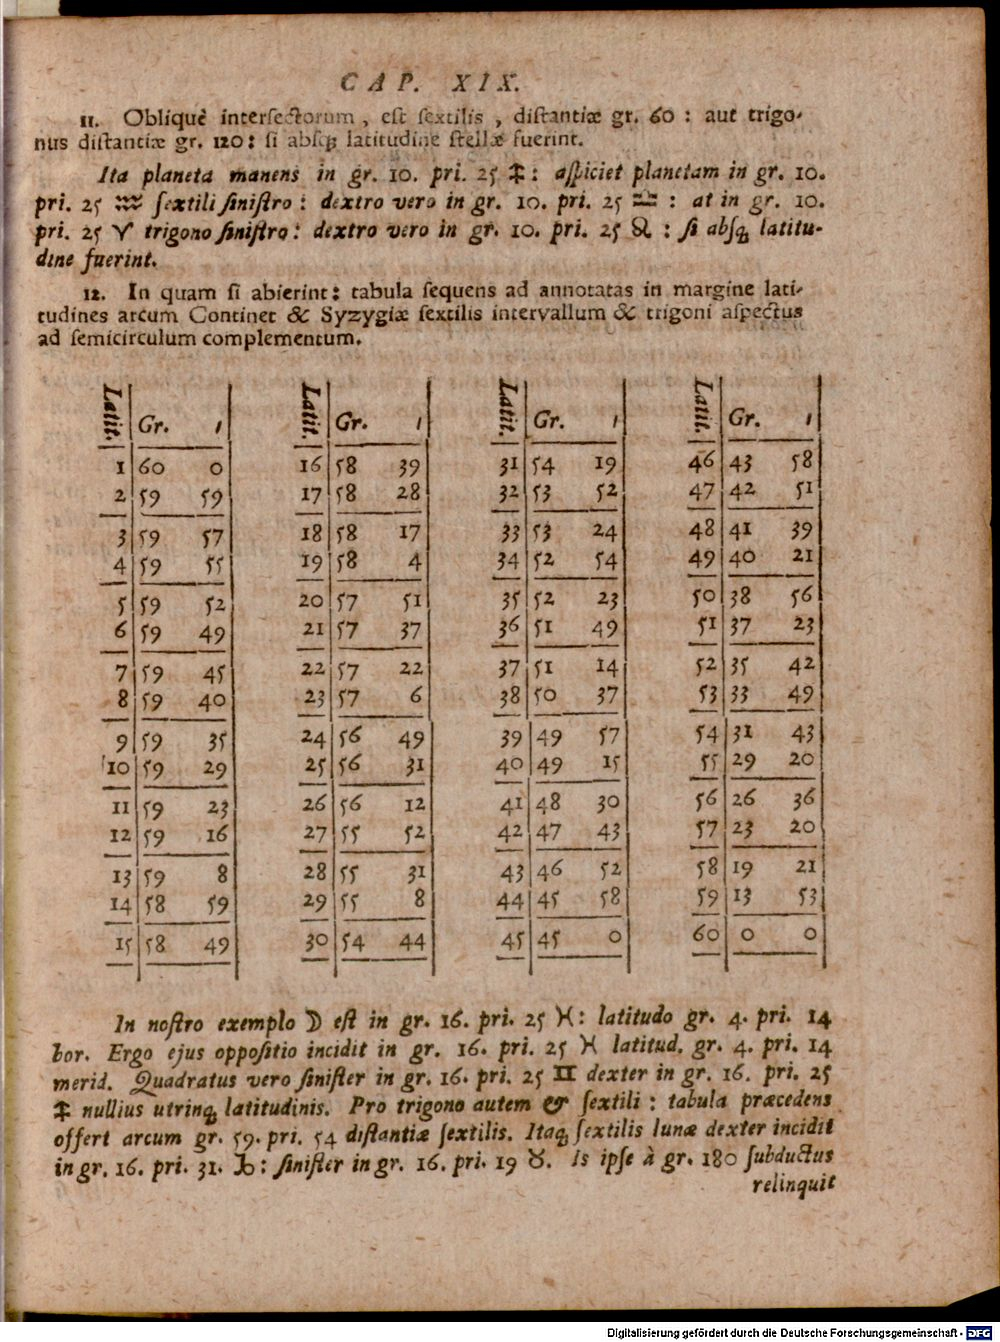 CAP. XIX.
11. Obliquè intersectorum, est sextilis, distantiæ gr. 60: aut trigo-
nus distantiæ gr. 120: si absq; latitudine stellæ fuerint.
Ita planeta manens in gr. 10. pri. 25 ♐: aspiciet planetam in gr. 10.
pri. 25 ♒ sextili sinistro: dextro vero in gr. 10. pri. 25 ♎: at in gr. 10.
pri. 25 ♈ trigono sinistro: dextro vero in gr. 10. pri. 25 ♌: si absq; latitu-
dine fuerint.
12. In quam si abierint: tabula sequens ad annotatas in margine lati-
tudines arcum Continet & Syzygiæ sextilis intervallum & trigoni aspectus
ad semicirculum complementum.
Latit. Gr. ı Latit. Gr. ı Latit. Gr. ı Latit. Gr. ı
1 60 0 16 58 39 31 54 19 46 43 58
2 59 59 17 58 28 32 53 52 47 42 51
3 59 57 18 58 17 33 53 24 48 41 39
4 59 55 19 58 4 34 52 54 49 40 21
5 59 52 20 57 51 35 52 23 50 38 56
6 59 49 21 57 37 36 51 49 51 37 23
7 59 45 22 57 22 37 51 14 52 35 42
8 59 40 23 57 6 38 50 37 53 33 49
9 59 35 24 56 49 39 49 57 54 31 43
10 59 29 25 56 31 40 49 15 55 29 20
11 59 23 26 56 12 41 48 30 56 26 36
12 59 16 27 55 52 42 47 43 57 23 20
13 59 8 28 55 31 43 46 52 58 19 21
14 58 59 29 55 8 44 45 58 59 13 53
15 58 49 30 54 44 45 45 0 60 0 0
In nostro exemplo ☽ est in gr. 16. pri. 25 ♓: latitudo gr. 4. pri. 14
bor. Ergo ejus oppositio incidit in gr. 16. pri. 25 ♓ latitud. gr. 4. pri. 14
merid. Quadratus vero sinister in gr. 16. pri. 25 ♊ dexter in gr. 16. pri. 25
♐ nullius utrinq; latitudinis. Pro trigono autem & sextili: tabula præcedens
offert arcum gr. 59. pri. 54 distantiæ sextilis. Itaq; sextilis lunæ dexter incidit
in gr. 16. pri. 31. ♑: sinister in gr. 16. pri. 19 ♉. Is ipse à gr. 180 subductus
relinquit
Digitalisierung gefördert durch die Deutsche Forschungsgemeinschaft - DFG